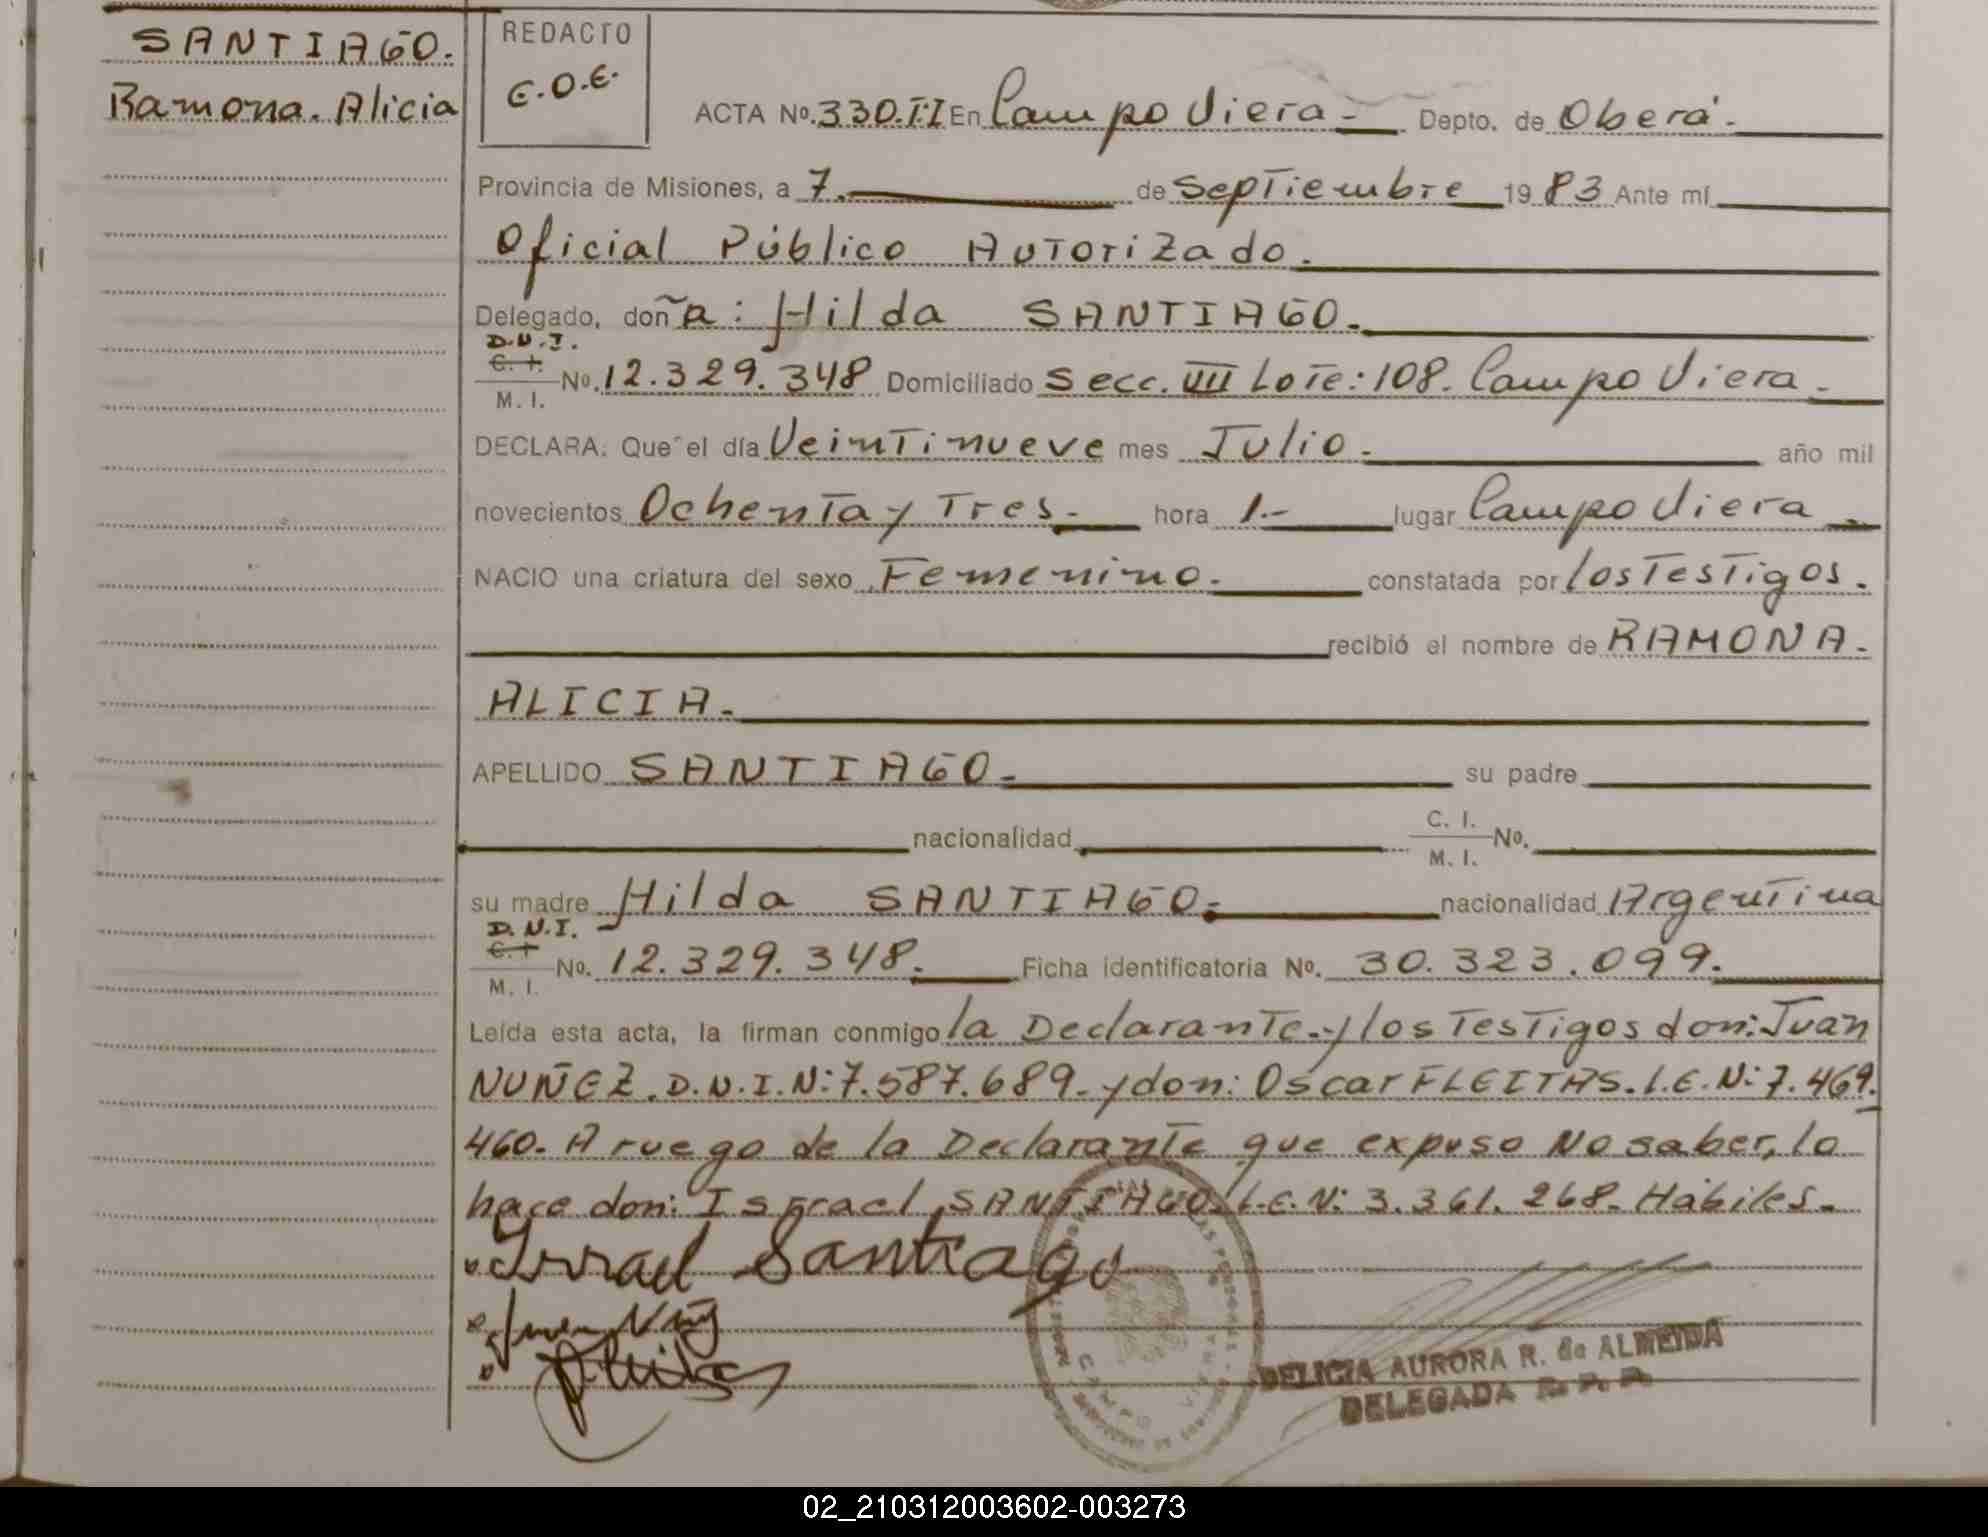 SANTIAGO.
Ramona. Alicia
REDACTO
E.O.E.
ACTA Nº. 330.II En Campo Viera.- Depto. de Oberá.
Provincia de Misiones, a 7. de Septiembre 1983 Ante mí
Oficial Público Autorizado.
Delegado, doña: Hilda SANTIAGO.
D.N.I.
C. I.
M. I.
Nº. 12.329.348 Domiciliado Secc. VIII Lote: 108. Campo Viera.
DECLARA: Que el día Veintinueve mes Julio. año mil
novecientos Ochenta y Tres.- hora 1.- lugar Campo Viera.
NACIO una criatura del sexo Femenino. constatada por los Testigos.
recibió el nombre de RAMONA.
ALICIA.
APELLIDO SANTIAGO. su padre
nacionalidad C. I.
M. I.
Nº.
su madre Hilda SANTIAGO. nacionalidad Argentina
D.N.I.
C. I.
M. I.
Nº. 12.329.348. Ficha identificatoria Nº. 30.323.099.
Leída esta acta, la firman conmigo la Declarante.y los Testigos don: Juan
NUÑEZ. D.N.I.N: 7.587.689. y don: Oscar FLEITAS. L.E.N: 7.469.
460. A ruego de la Declarante que expuso No saber, lo
hace don: Israel SANTIAGO. L.E.N: 3.361.268. Hábiles.
Israel Santiago
CAMPO VIERA
DELICIA AURORA R. de ALMEIDA
DELEGADA
02_210312003602-003273